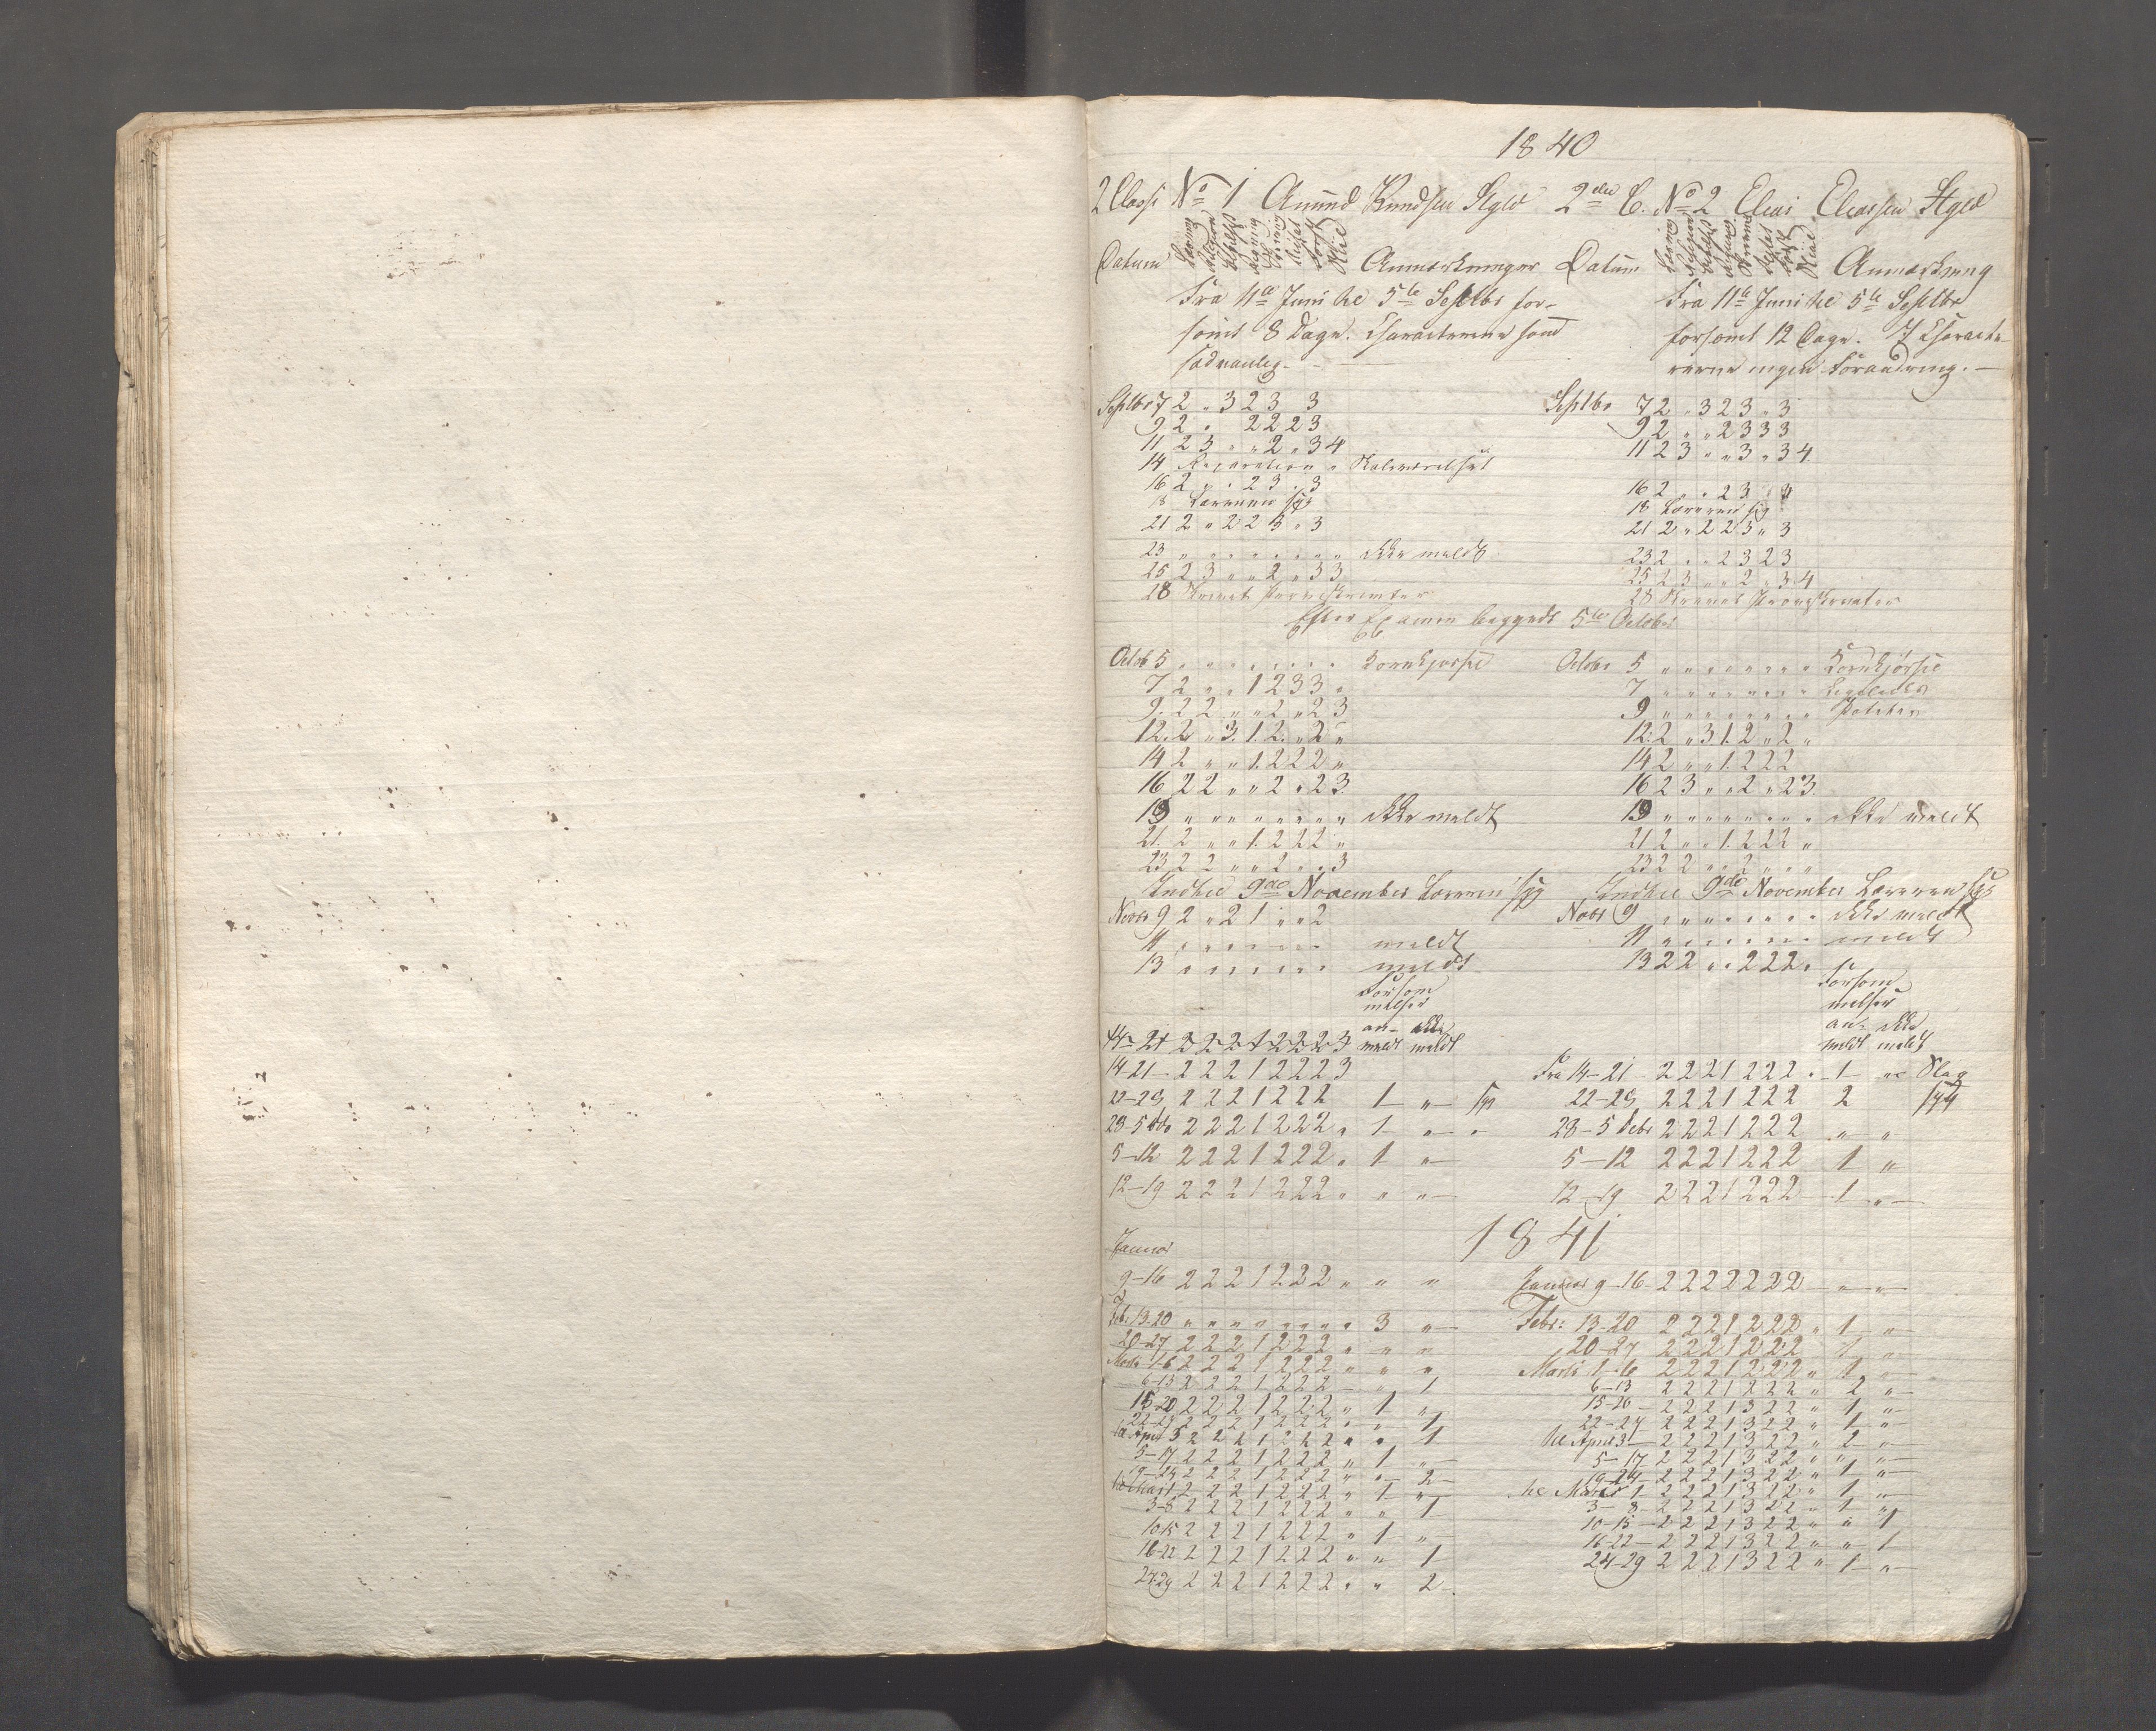 1840
2 Classe No 1 Amund Knudsen Stgld
Datum Anmærkninger
Fra 11te Juni til 5te Septbr for-
sømt 8 Dage. Characterene som
sædvanlig.
Septbr 7 2 „ 3 2 3 3
9 2 „ 2 2 2 3
11 2 3 „ „ 2 „ 3 4
14 Reparation „ Skoleværelset
16 2 „ „ 2 3 „ 3
18 Læreren syg
21 2 „ 2 2 3 „ 3
23 „ „ „ „ „ „ „ „ ikke meldt
25 2 3 „ „ 2 „ 3 3
28 Skrevet Prøveskrivter
Efter Examen begyndt 5te October
Octob 5 „ „ „ „ „ „ „ „ Kornkjørsel
7 2 „ „ 1 2 3 3 „
9. 2 2 „ „ 2 „ 2 3
12. 2 „ 3. 1. 2. „ 2 „
14 2 „ „ 1. 2 2 2 „
16 2 2 „ „ 2 „ 2 3.
19 „ „ „ „ „ „ „ „ ikke meldt
21. 2 „ „ 1. 2 2 2 „
23 2 2 „ „ 2 „ „ 3
Indtil 9de November Læreren syg
Novbr 9 2 „ 2 1 „ „ 2
11 „ „ „ „ „ „ „ „ meldt
13 „ „ „ „ „ „ „ „ meldt
Forsøm
melser
an- ikke
meldt meldt
14-21 2 2 2 1 2 2 2 3
14-21 2 2 2 1 2 2 2 3
22-28 2 2 2 1 2 2 2 1 „ syg
28-5 2 2 2 1 2 2 2 „ 1 „ „
5-12 2 2 2 1 2 2 2 „ 1 „
12-19 2 2 2 1 2 2 2 „ „ „
1841
Januar
9-16 2 2 2 1 2 2 2 „ „ „
Feb: 13-20 „ „ „ „ „ „ „ „ 3 „
20-27 2 2 2 1 2 2 2 „ „ „
Marts 1-6 2 2 2 1 2 2 2 „ „ „
6-13 2 2 2 1 2 2 2 „ 1
15-20 2 2 2 1 2 2 2 „ 1 „
22-27 2 2 2 1 2 2 2 „ „ 1
til April 3 2 2 2 1 2 2 2 „ „ 1
5-17 2 2 2 1 2 2 2 „ 1 „
19-24 2 2 2 1 2 2 2 „ „ 2
til Mai 1 2 2 2 1 2 2 2 „ 1 „
3-8 2 2 2 1 2 2 2 „ „ 1
10-15 2 2 2 1 2 2 2 „ 1 „
16-22 2 2 2 1 2 2 2 „ „ 1
24-29 2 2 2 1 2 2 2 „ „ 2
2den C. No 2 Elias Eliassen Stgld
Datum Anmærkning
Fra 11te Juni til 5te Septbr
forsømt 12 Dage. I Characte-
rerne ingen Forandring.
Septbr 7 2 „ 3 2 3 „ 3
9 2 „ „ 2 3 3 3
11 2 3 „ „ 3 „ 3 4.
16 2 „ „ 2 3 „
18 Læreren syg
21 2 „ 2 2 3 „ 3
23 2 „ „ 2 3 2 3
25 2 3 „ „ 2 „ 3 4
28 Skrevet Prøveskrivter
Octobr 5 „ „ „ „ „ „ „ „ Kornkjørsel
7 „ „ „ „ „ „ „ „
9 „ „ „ „ „ „ „ „ Poteter
12. 2 „ 3 1. 2 „ 2 „
14 2 „ „ 1. 2 2 2
16 2 3 „ „ 2 „ 2 3.
19 „ „ „ „ „ „ „ „ ikke meldt
21 2 „ „ 1. 2 2 2 „
23 2 2 „ „ 2 „ „ „
Indtil 9de November Læreren syg
Novbr 9 „ „ „ „ „ „ „ „ ikke meldt
11 „ „ „ „ „ „ „ „ meldt
13 2 2 „ „ 2 2 2 „
Forsøm
melser
an- ikke
meldt meldt
Fra 14-21 2 2 2 1 2 2 2 „ 1 „
22-28 2 2 2 1 2 2 2 2 syg
28-5 Debr 2 2 2 1 2 2 2 „ „
5-12 2 2 2 1 2 2 2 1 „
12-19 2 2 2 1 2 2 2 1 „
Januar 9-16 2 2 2 2 2 2 2 „ „
Febr: 13-20 2 2 2 1 2 2 2 „ 1 „
20-27 2 2 2 1 2 2 2 1 „
Marts 1-6 2 2 2 1 2 2 2 „ 1 „
6-13 2 2 2 1 2 2 2 „ 2 „
15-20 2 2 2 1 3 2 2 „ 1 „
22-27 2 2 2 1 3 2 2 „ 1 „
til April 3 2 2 2 1 3 2 2 „ 2 „
5-17 2 2 2 1 3 2 2 „ „ „
19-24 2 2 2 1 3 2 2 „ 1 „
til Mai 1 2 2 2 1 3 2 2 „ 1 „
3-8 2 2 2 1 3 2 2 „ 1 „
10-15 2 2 2 1 3 2 2 „ „ 1
16-22 2 2 2 1 3 2 2 „ „ 1
24-29 2 2 2 1 3 2 2 „ 1 „